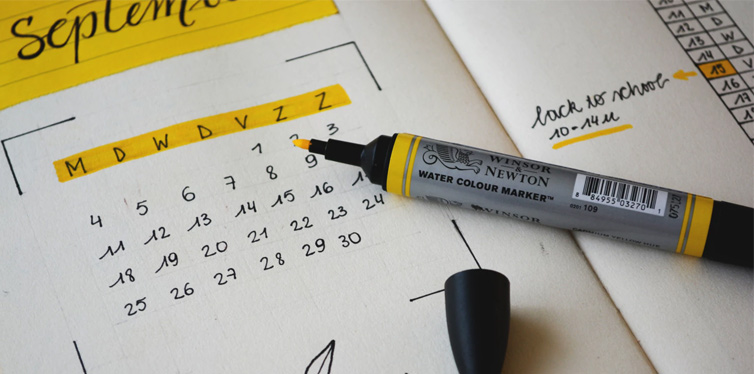 M D W D V Z Z
1 2 3
4 5 6 7 8 9
11 12 13 14 15 16
18 19 20 21 22 23 24
25 26 27 28 29 30
WINSOR
&
NEWTON
WATER COLOUR MARKER™
8 84955 03270 1
109
WINSOR
back to school
10-14u
11 M
12 D
13 W
14 D
15 V
16
17